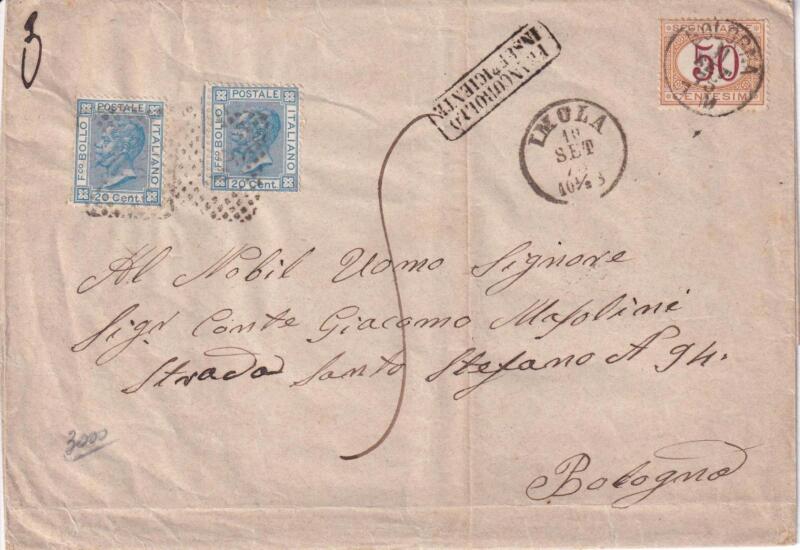 3
POSTALE
Fco BOLLO
ITALIANO
20 Cent.
POSTALE
Fco BOLLO
ITALIANO
20 Cent.
FRANCOBOLLO
INSUFFICIENTE
IMOLA
19
SET
10½ S
SEGNATASSE
50
CENTESIMI
BOLOGNA
Al Nobil Uomo Signore
Sigr Conte Giacomo Masolini
Strada Santo Stefano N 94.
Bologna
3000